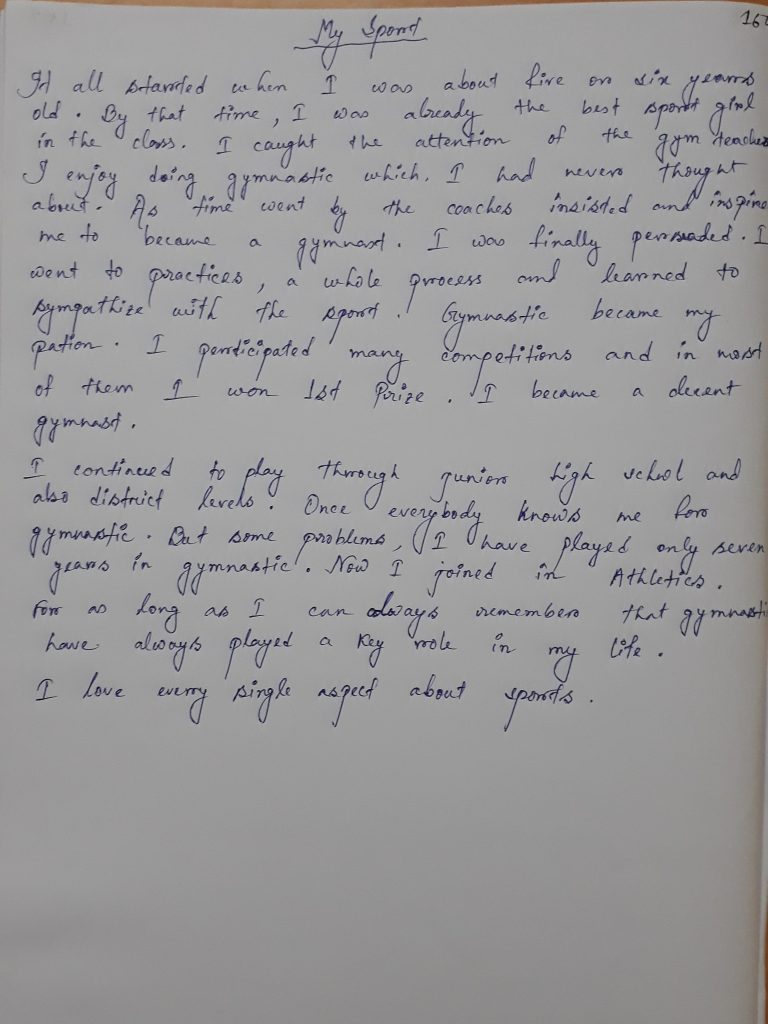 My Sport
It all started when I was about five or six years
old. By that time, I was already the best sport girl
in the class. I caught the attention of the gym teacher
I enjoy doing gymnastic which. I had never thought
about. As time went by the coaches insisted and inspire
me to became a gymnast. I was finally persuaded. I
went to practices, a whole process and learned to
sympathize with the sport. Gymnastic became my
pation. I perticipated many competitions and in most
of them I won 1st Prize. I became a decent
gymnast.
I continued to play through junior high school and
also district levels. Once everybody knows me for
gymnastic. But some problems, I have played only seven
years in gymnastic. Now I joined in Athletics.
For as long as I can always remember that gymnasti
have always played a key role in my life.
I love every single aspect about sports.